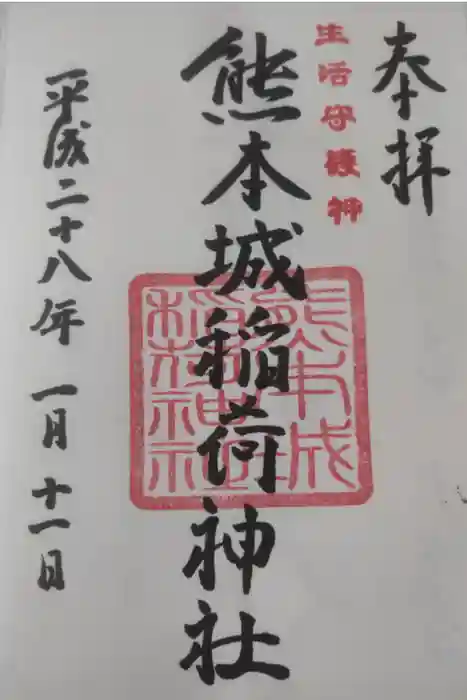 奉拝
生活守護神
熊本城稲荷神社
熊本城
稲荷神社
平成二十八年 一月十一日